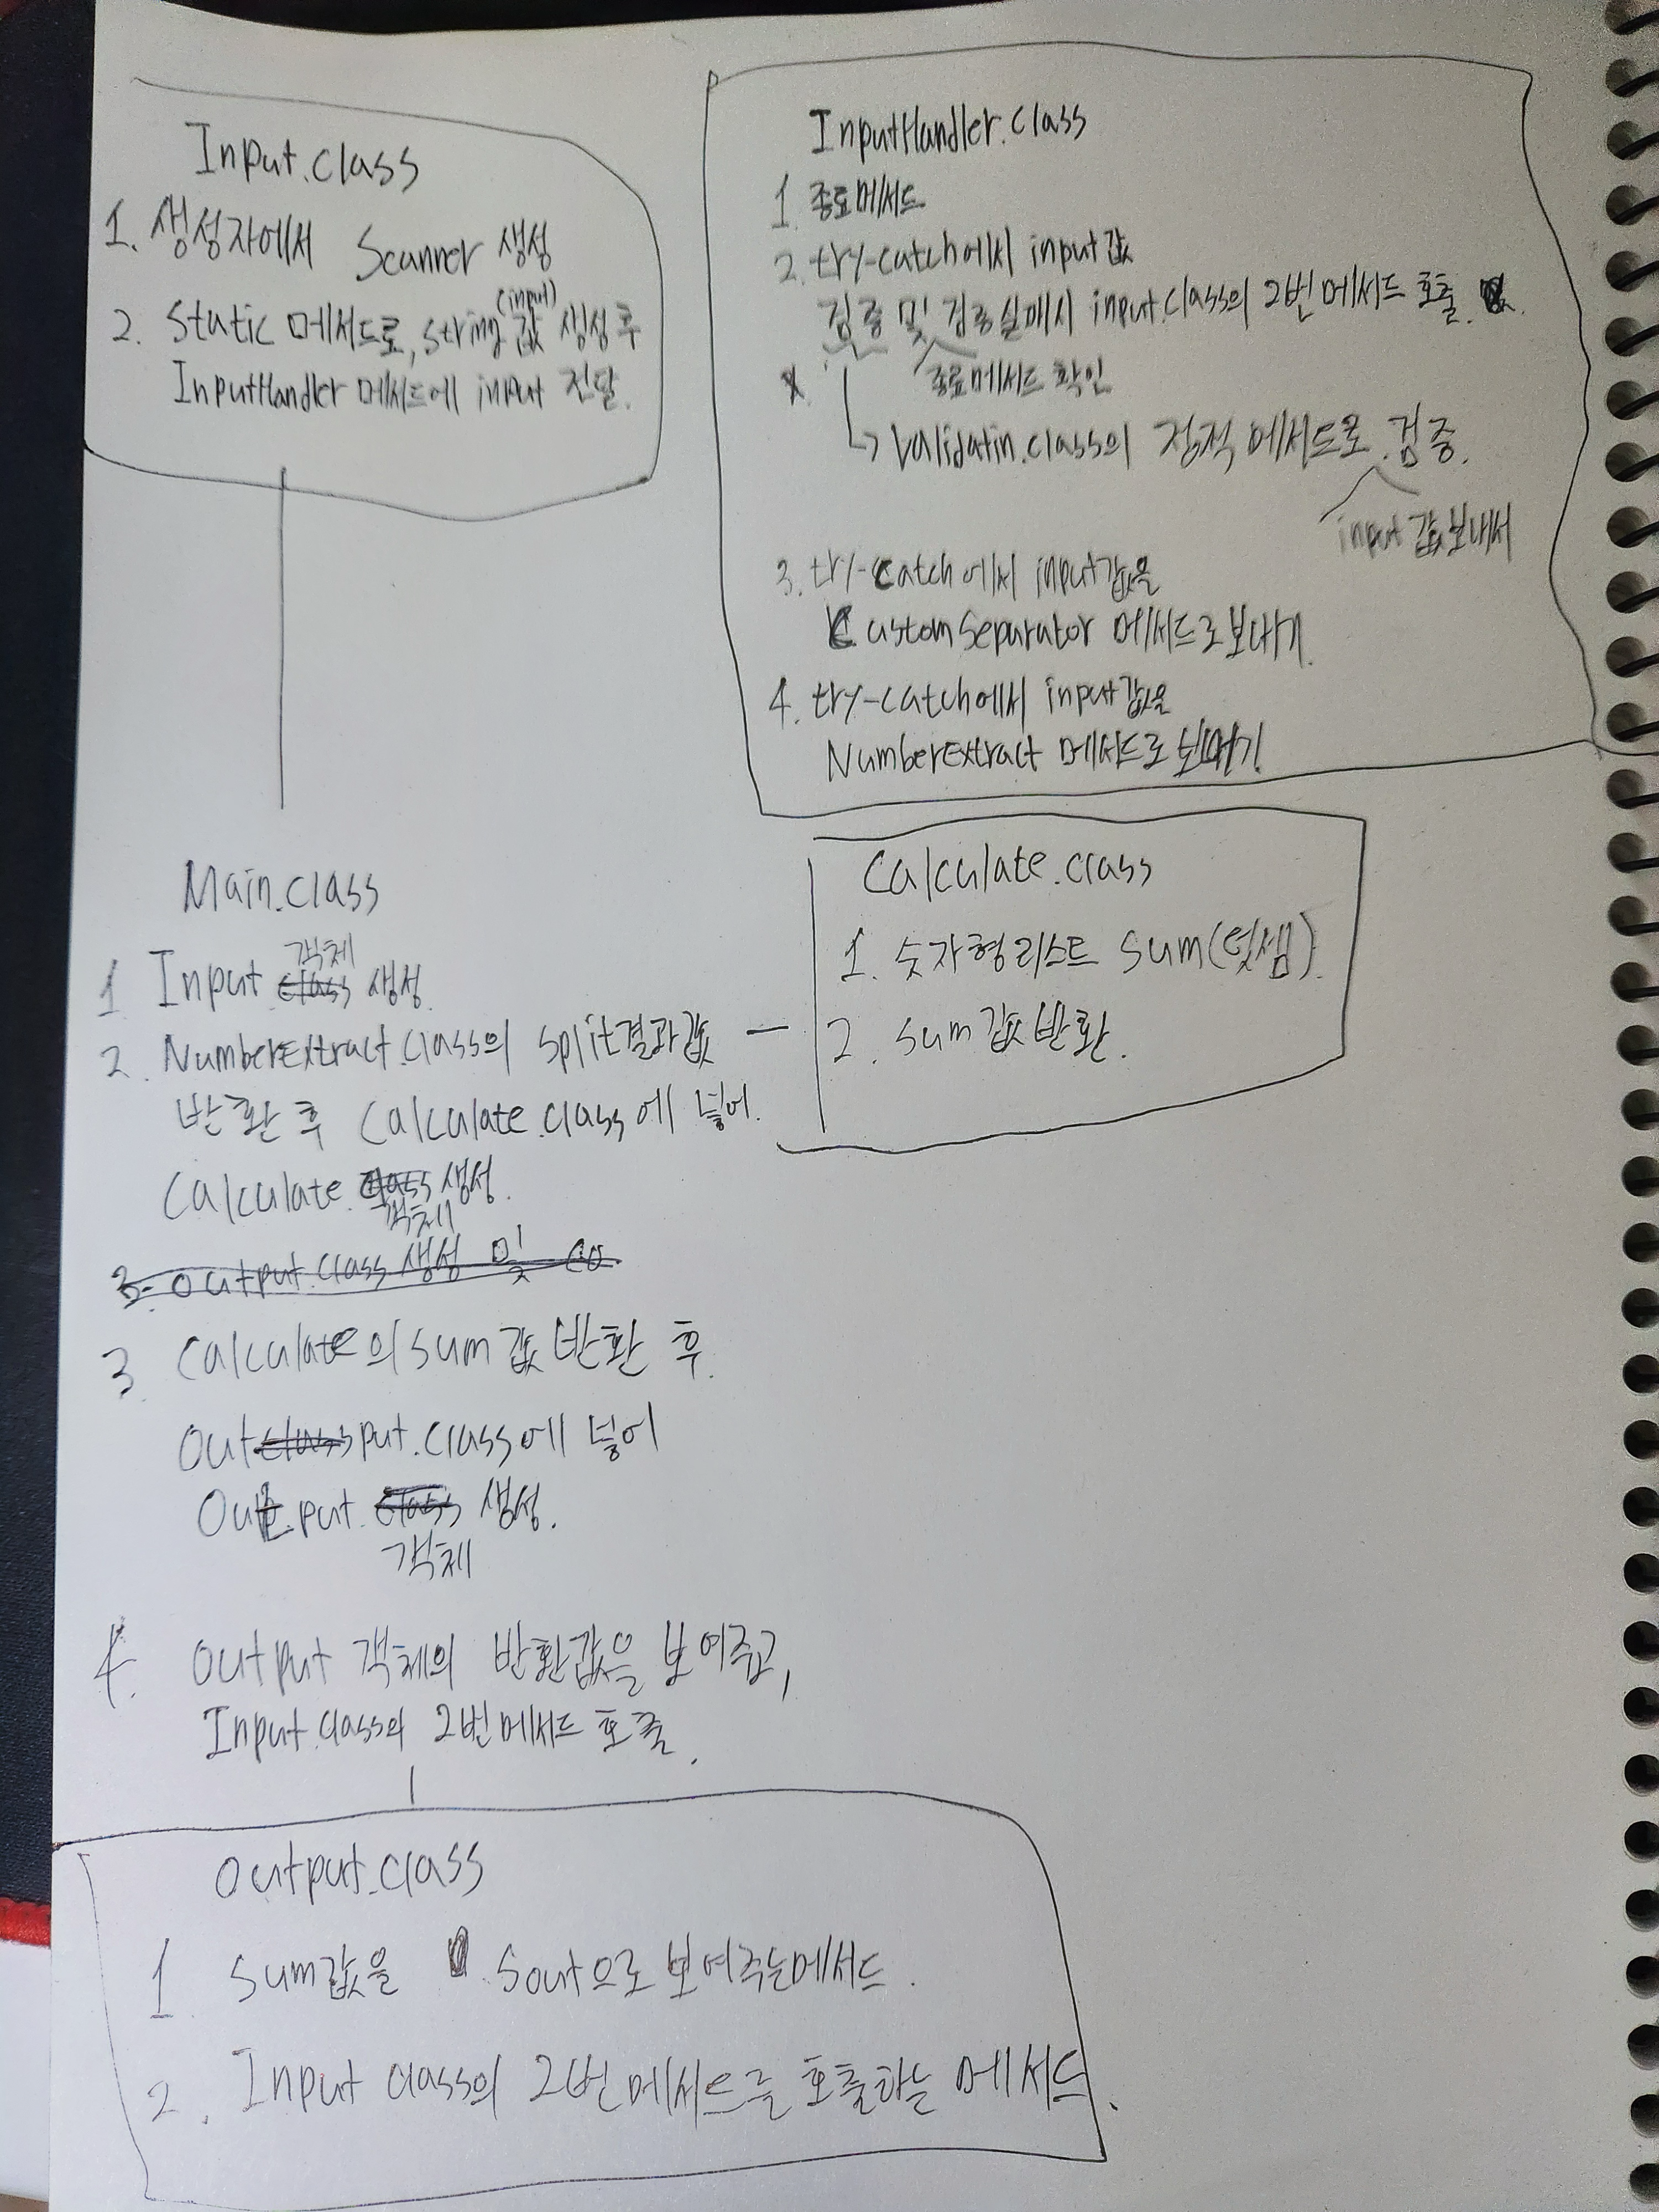 Input.class
1. 생성자에서 Scanner 생성
(input)
2. Static 메서드로, string 값 생성 후
InputHandler 메서드에 input 전달.
InputHandler.class
1 종료메서드
2. try-catch에서 input값
검증 및 검증실패시 input.class의 2번 메서드 호출.
종료메서드 확인
↳ Validatin.class의 정적 메서드로 검증.
input 값 보내서
3. try-catch에서 input값을
CustomSeparator 메서드로 보내기.
4. try-catch에서 input값을
NumberExtract 메서드로 보내기.
Main.class
객체
1 Input class 생성.
2. NumberExtract.class의 split결과값
반환 후 Calculate.class에 넣어.
Calculate.class 생성.
객체
3. output.class 생성 및 co.
3. Calculate의 sum 값 반환 후.
Outclassput.class에 넣어
Output.class 생성.
객체
4. output 객체의 반환값을 보여주고,
Input.class의 2번메서드 호출.
Calculate.class
1. 숫자형 리스트 sum(덧셈).
2. sum 값 반환.
output.class
1 sum값을 sout으로 보여주는메서드.
2. Input class의 2번 메서드를 호출하는 메서드.